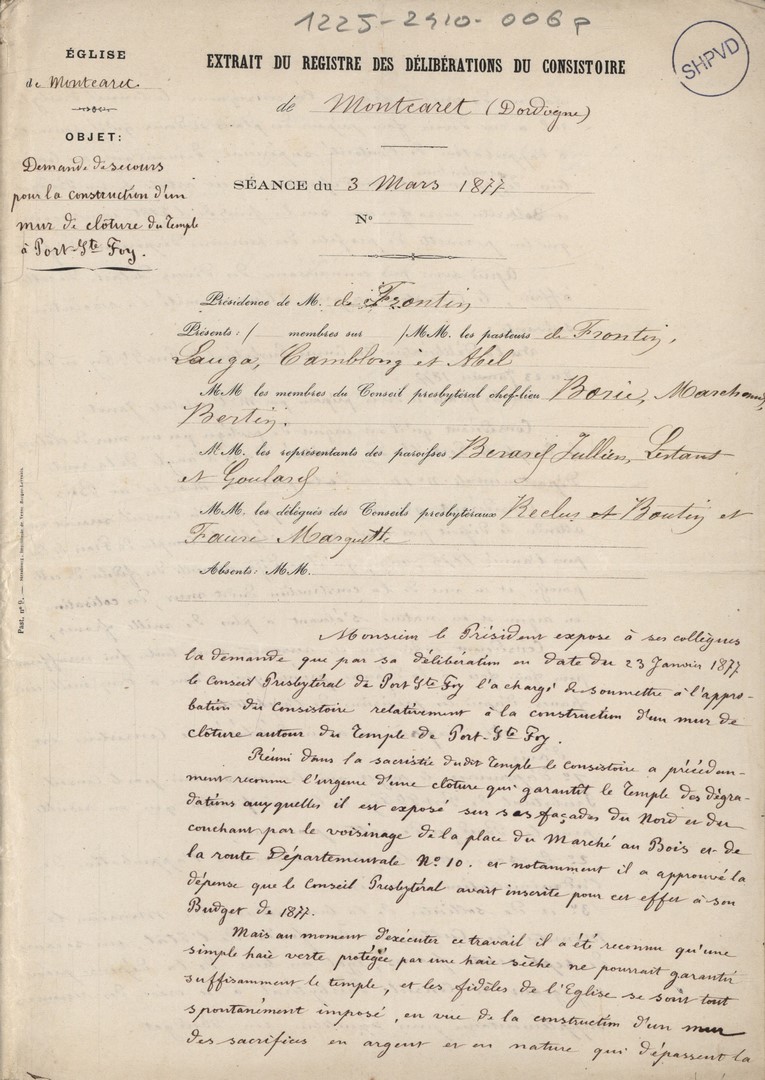 1225-2410-006p
SHPVD
ÉGLISE
de Montcaret
OBJET:
Demande de secours
pour la construction d'un
mur de clôture du Temple
à Port-Ste Foy.
EXTRAIT DU REGISTRE DES DÉLIBÉRATIONS DU CONSISTOIRE
de Montcaret (Dordogne)
SÉANCE du 3 Mars 1877
No
Présidence de M. de Frontin
Présents: ( membres sur )MM. les pasteurs de Frontin,
Lauga, Camblong et Abel
MM les membres du Conseil presbytéral chef-lieu Borie, Marchand,
Bertin.
MM. les représentants des paroisses Berard Jullien, Lestans
et Goulard
MM. les délégués des Conseils presbytéraux Reclus et Boutin et
Faure Marquette
Absents: MM.
Past. no 9. — Strasbourg, Veuve Berger-Levrault.
Monsieur le Président expose à ses collègues
la demande que par sa délibération en date du 23 Janvier 1877
le Conseil Presbytéral de Port Ste Foy l'a chargé de soumettre à l'appro-
bation du Consistoire relativement à la construction d'un mur de
clôture autour du Temple de Port-Ste Foy.
Réuni dans la sacristie dudit Temple le Consistoire a précédem-
ment reconnu l'urgence d'une clôture qui garantit le Temple des dégra-
dations auxquelles il est exposé sur ses façades du Nord et du
couchant par le voisinage de la place du Marché au Bois et de
la route Départementale No 10. et notamment il a approuvé la
dépense que le Conseil Presbytéral avait inscrite pour cet effet à son
Budget de 1877.
Mais au moment d'exécuter ce travail il a été reconnu qu'une
simple haie verte protégée par une haie sèche ne pourrait garantir
suffisamment le temple, et les fidèles de l'Eglise se sont tout
spontanément imposé, en vue de la construction d'un mur
des sacrifices en argent et en nature qui dépassent la